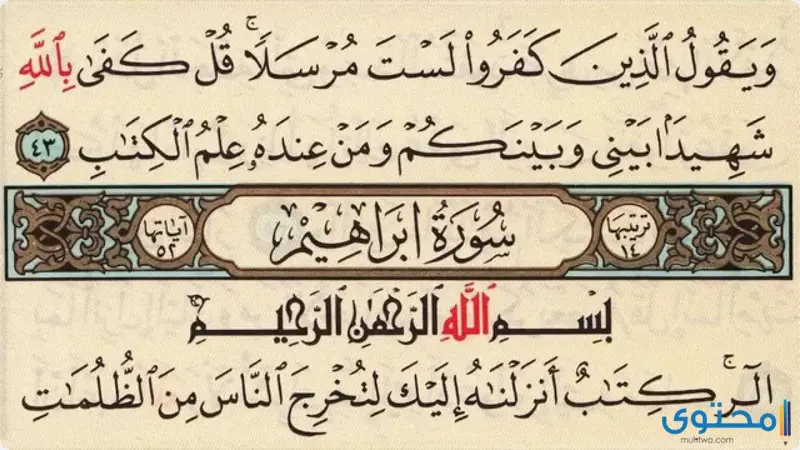 وَيَقُولُ ٱلَّذِينَ كَفَرُوا۟ لَسْتَ مُرْسَلًا ۚ قُلْ كَفَىٰ بِٱللَّهِ
شَهِيدًۢا بَيْنِى وَبَيْنَكُمْ وَمَنْ عِندَهُۥ عِلْمُ ٱلْكِتَٰبِ ٤٣
ترتيبها ١٤ سُورَةُ ابراهِيْم آياتها ٥٢
بِسْمِ ٱللَّهِ ٱلرَّحْمَٰنِ ٱلرَّحِيمِ
الٓر ۚ كِتَٰبٌ أَنزَلْنَٰهُ إِلَيْكَ لِتُخْرِجَ ٱلنَّاسَ مِنَ ٱلظُّلُمَٰتِ
محتوى
muhtwa.com